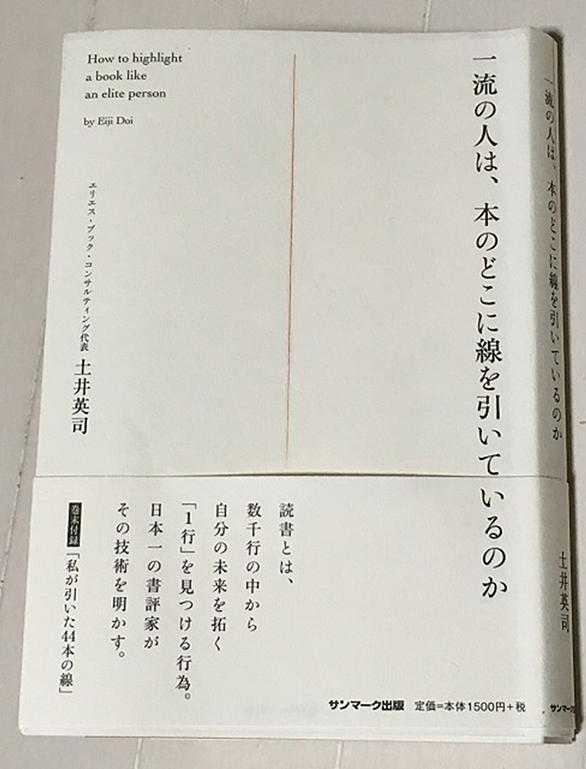 How to highlight
a book like
an elite person
by Eiji Doi
一流の人は、本のどこに線を引いているのか
エリエス・ブック・コンサルティング代表 土井英司
読書とは、
数千行の中から
自分の未来を拓く
「1行」を見つける行為。
日本一の書評家が
その技術を明かす。
巻末付録 「私が引いた44本の線」
サンマーク出版 定価=本体1500円+税
一流の人は、本のどこに線を引いているのか
土井英司
サンマーク出版